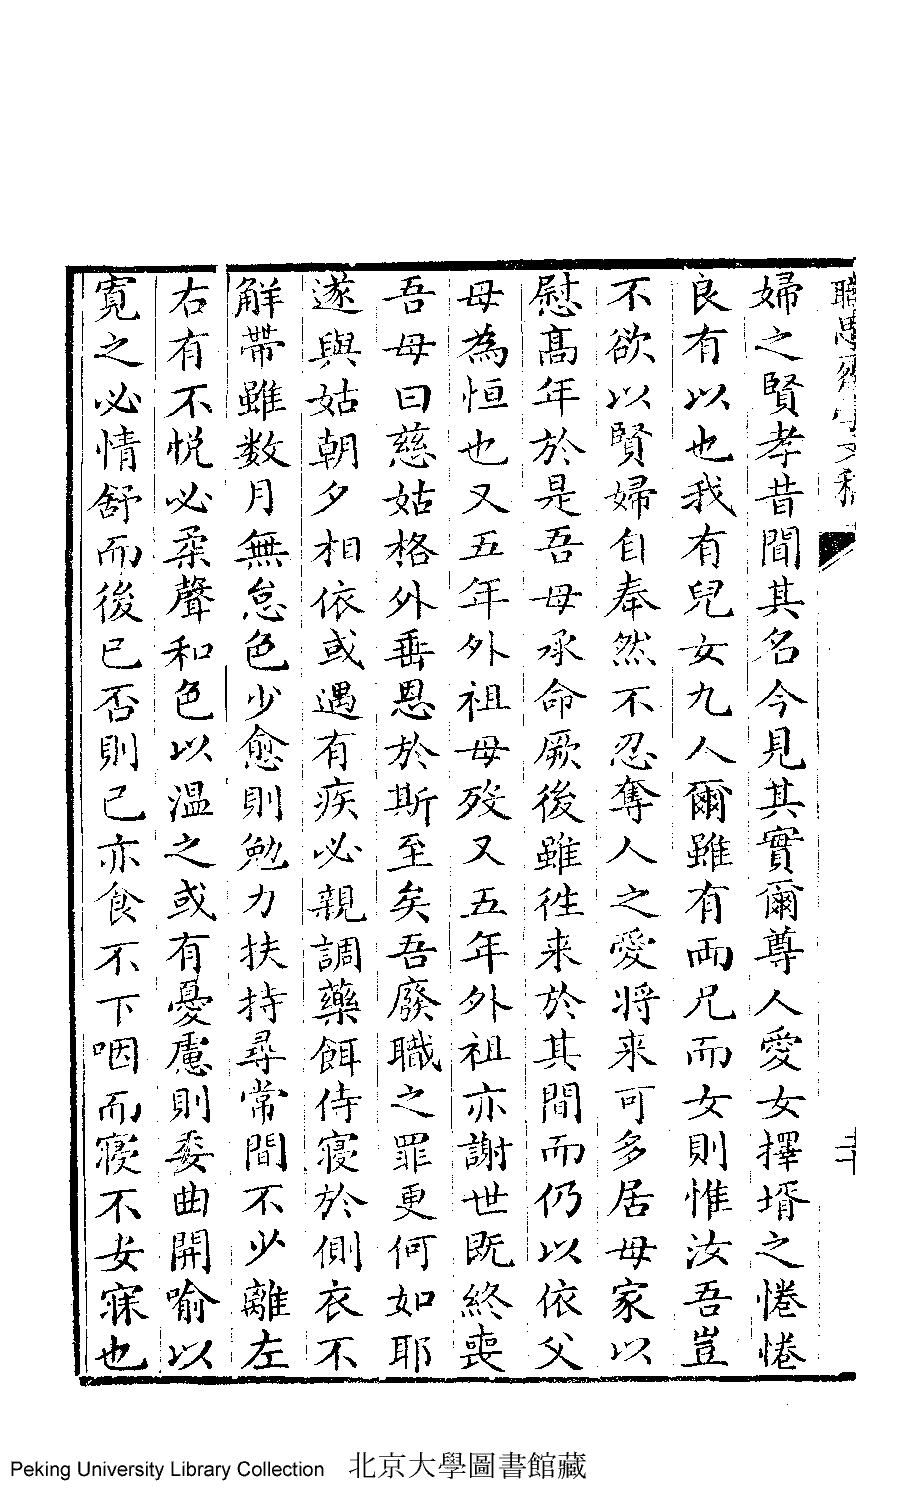 婦之賢孝昔聞其名今見其實爾尊人愛女擇壻之惓惓
良有以也我有兒女九人爾雖有兩兄而女則惟汝吾豈
不欲以賢婦自奉然不忍奪人之愛將来可多居母家以
慰髙年於是吾母承命厥後雖徃来於其間而仍以依父
母為恒也又五年外祖母歿又五年外祖亦謝世既終喪
吾母曰慈姑格外垂恩於斯至矣吾廢職之罪更何如耶
遂與姑朝夕相依或遇有疾必親調藥餌侍寢於側衣不
觧帶雖数月無怠色少愈則勉力扶持尋常間不少離左
右有不悦必柔聲和色以温之或有憂慮則委曲開喻以
寛之必情舒而後已否則已亦食不下咽而寢不安寐也
二十
Peking University Library Collection 北京大學圖書館藏